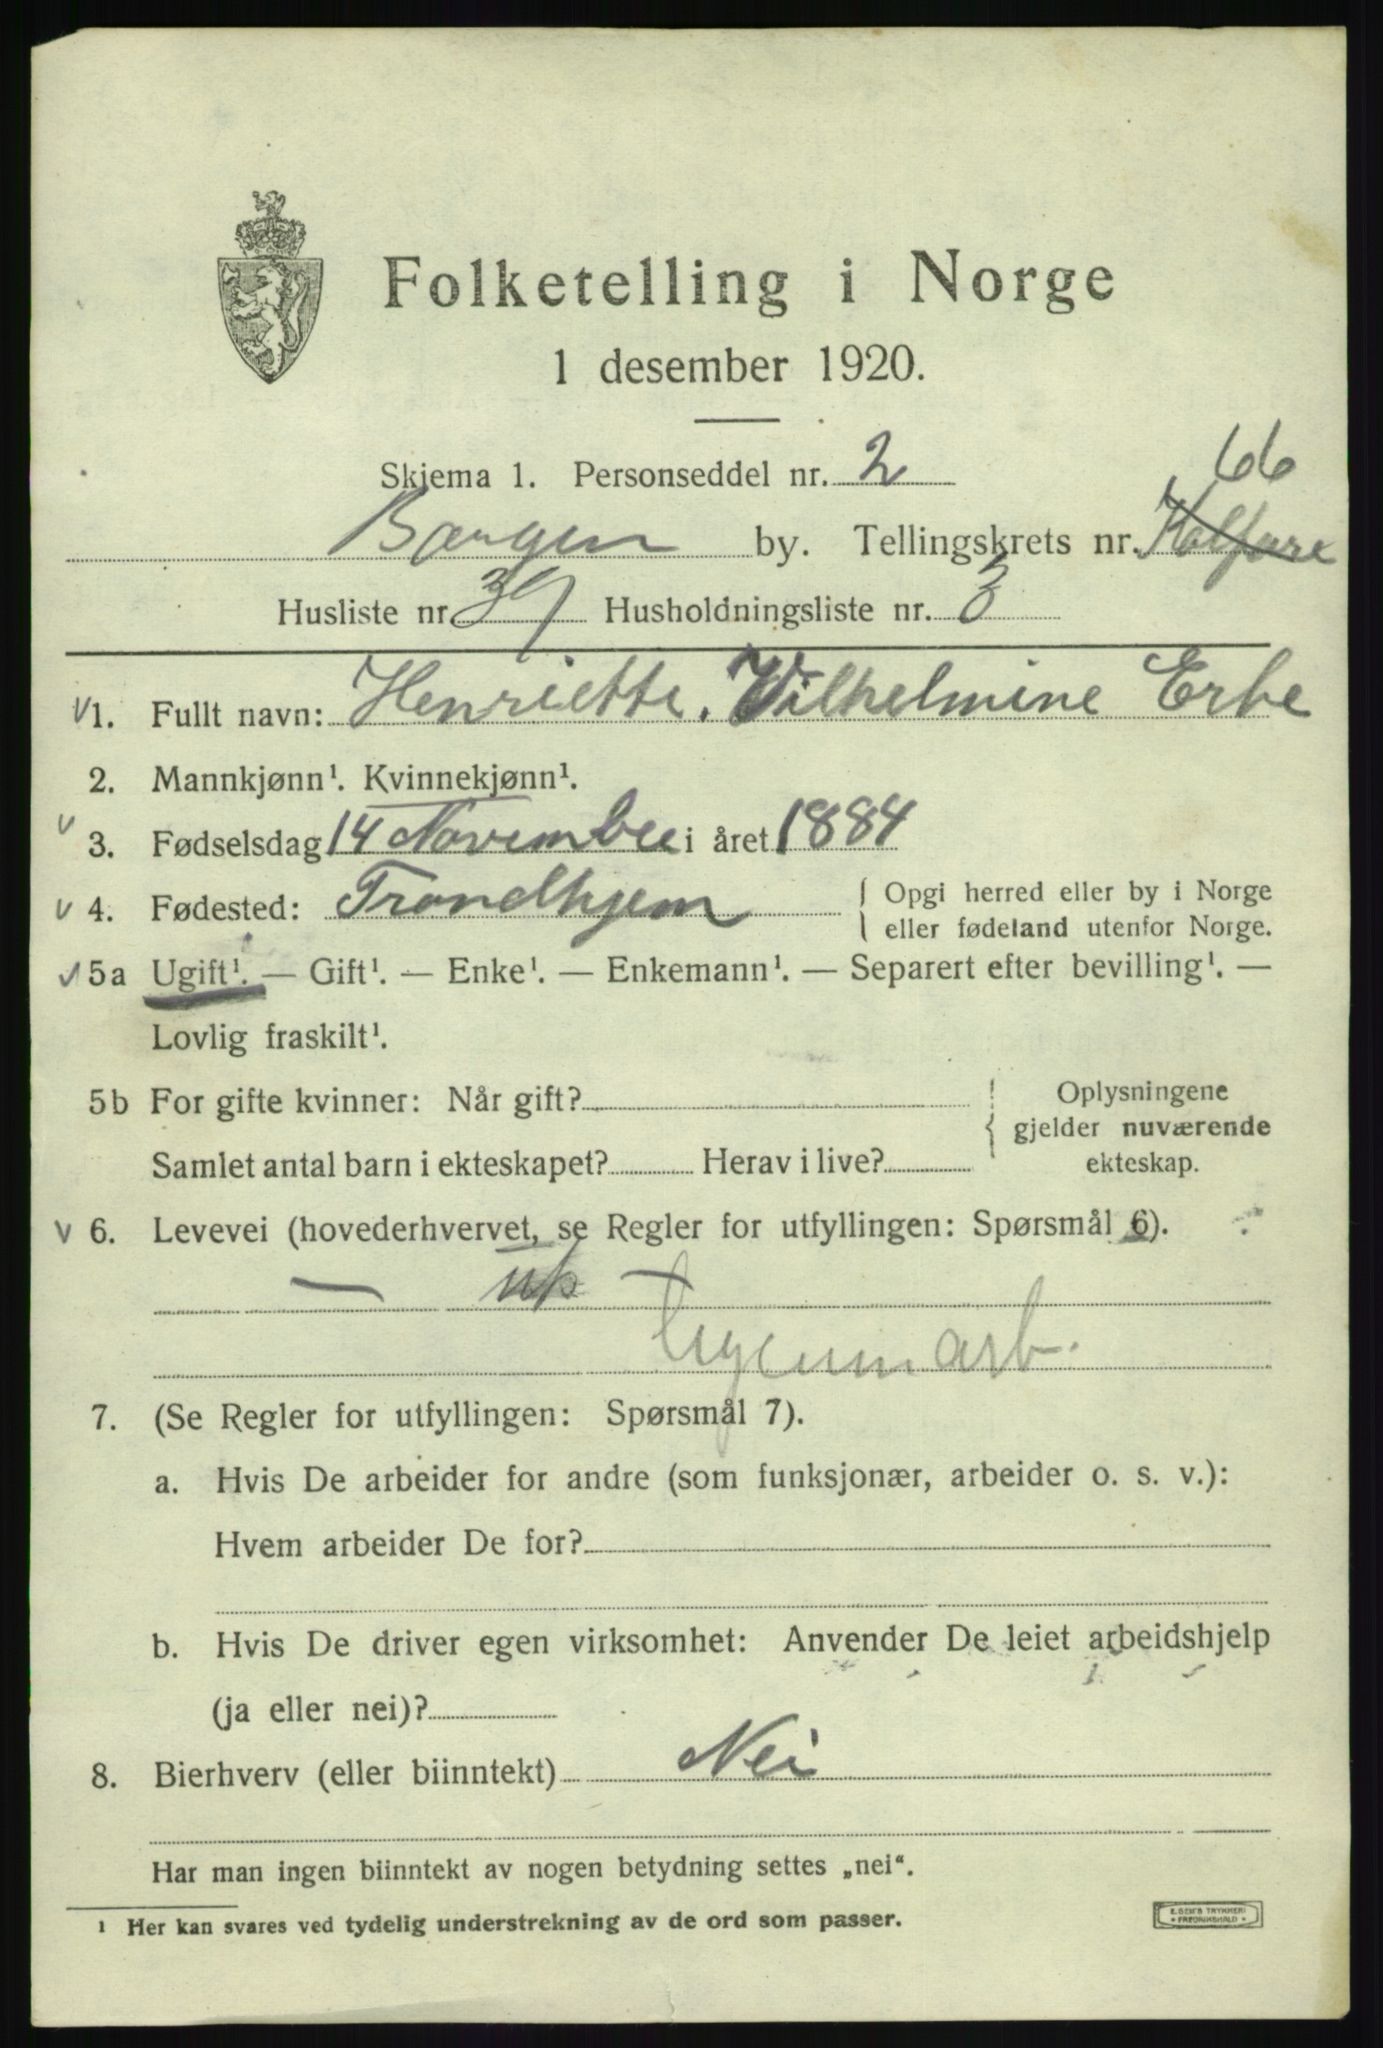 Folketelling i Norge
1 desember 1920.
Skjema 1. Personseddel nr. 2
66
Bergen by. Tellingskrets nr. Kalfare
Husliste nr. 39 Husholdningsliste nr. 3
v 1. Fullt navn: Henriette. Wilhelmine Erbe
2. Mannkjønn¹. Kvinnekjønn¹.
v 3. Fødselsdag 14 November i året 1884
v 4. Fødested: Trondhjem { Opgi herred eller by i Norge
eller fødeland utenfor Norge.
v 5a Ugift¹. — Gift¹. — Enke¹. — Enkemann¹. — Separert efter bevilling¹. —
Lovlig fraskilt¹.
5b For gifte kvinner: Når gift? { Oplysningene
gjelder nuværende
Samlet antal barn i ekteskapet? Herav i live? ekteskap.
v 6. Levevei (hovederhvervet, se Regler for utfyllingen: Spørsmål 6).
— —
arb.
7. (Se Regler for utfyllingen: Spørsmål 7).
a. Hvis De arbeider for andre (som funksjonær, arbeider o. s. v.):
Hvem arbeider De for?
b. Hvis De driver egen virksomhet: Anvender De leiet arbeidshjelp
(ja eller nei)?
8. Bierhverv (eller biinntekt) Nei
Har man ingen biinntekt av nogen betydning settes „nei“.
¹ Her kan svares ved tydelig understrekning av de ord som passer.
E. SEM'S TRYKKERI
FREDRIKSHALD